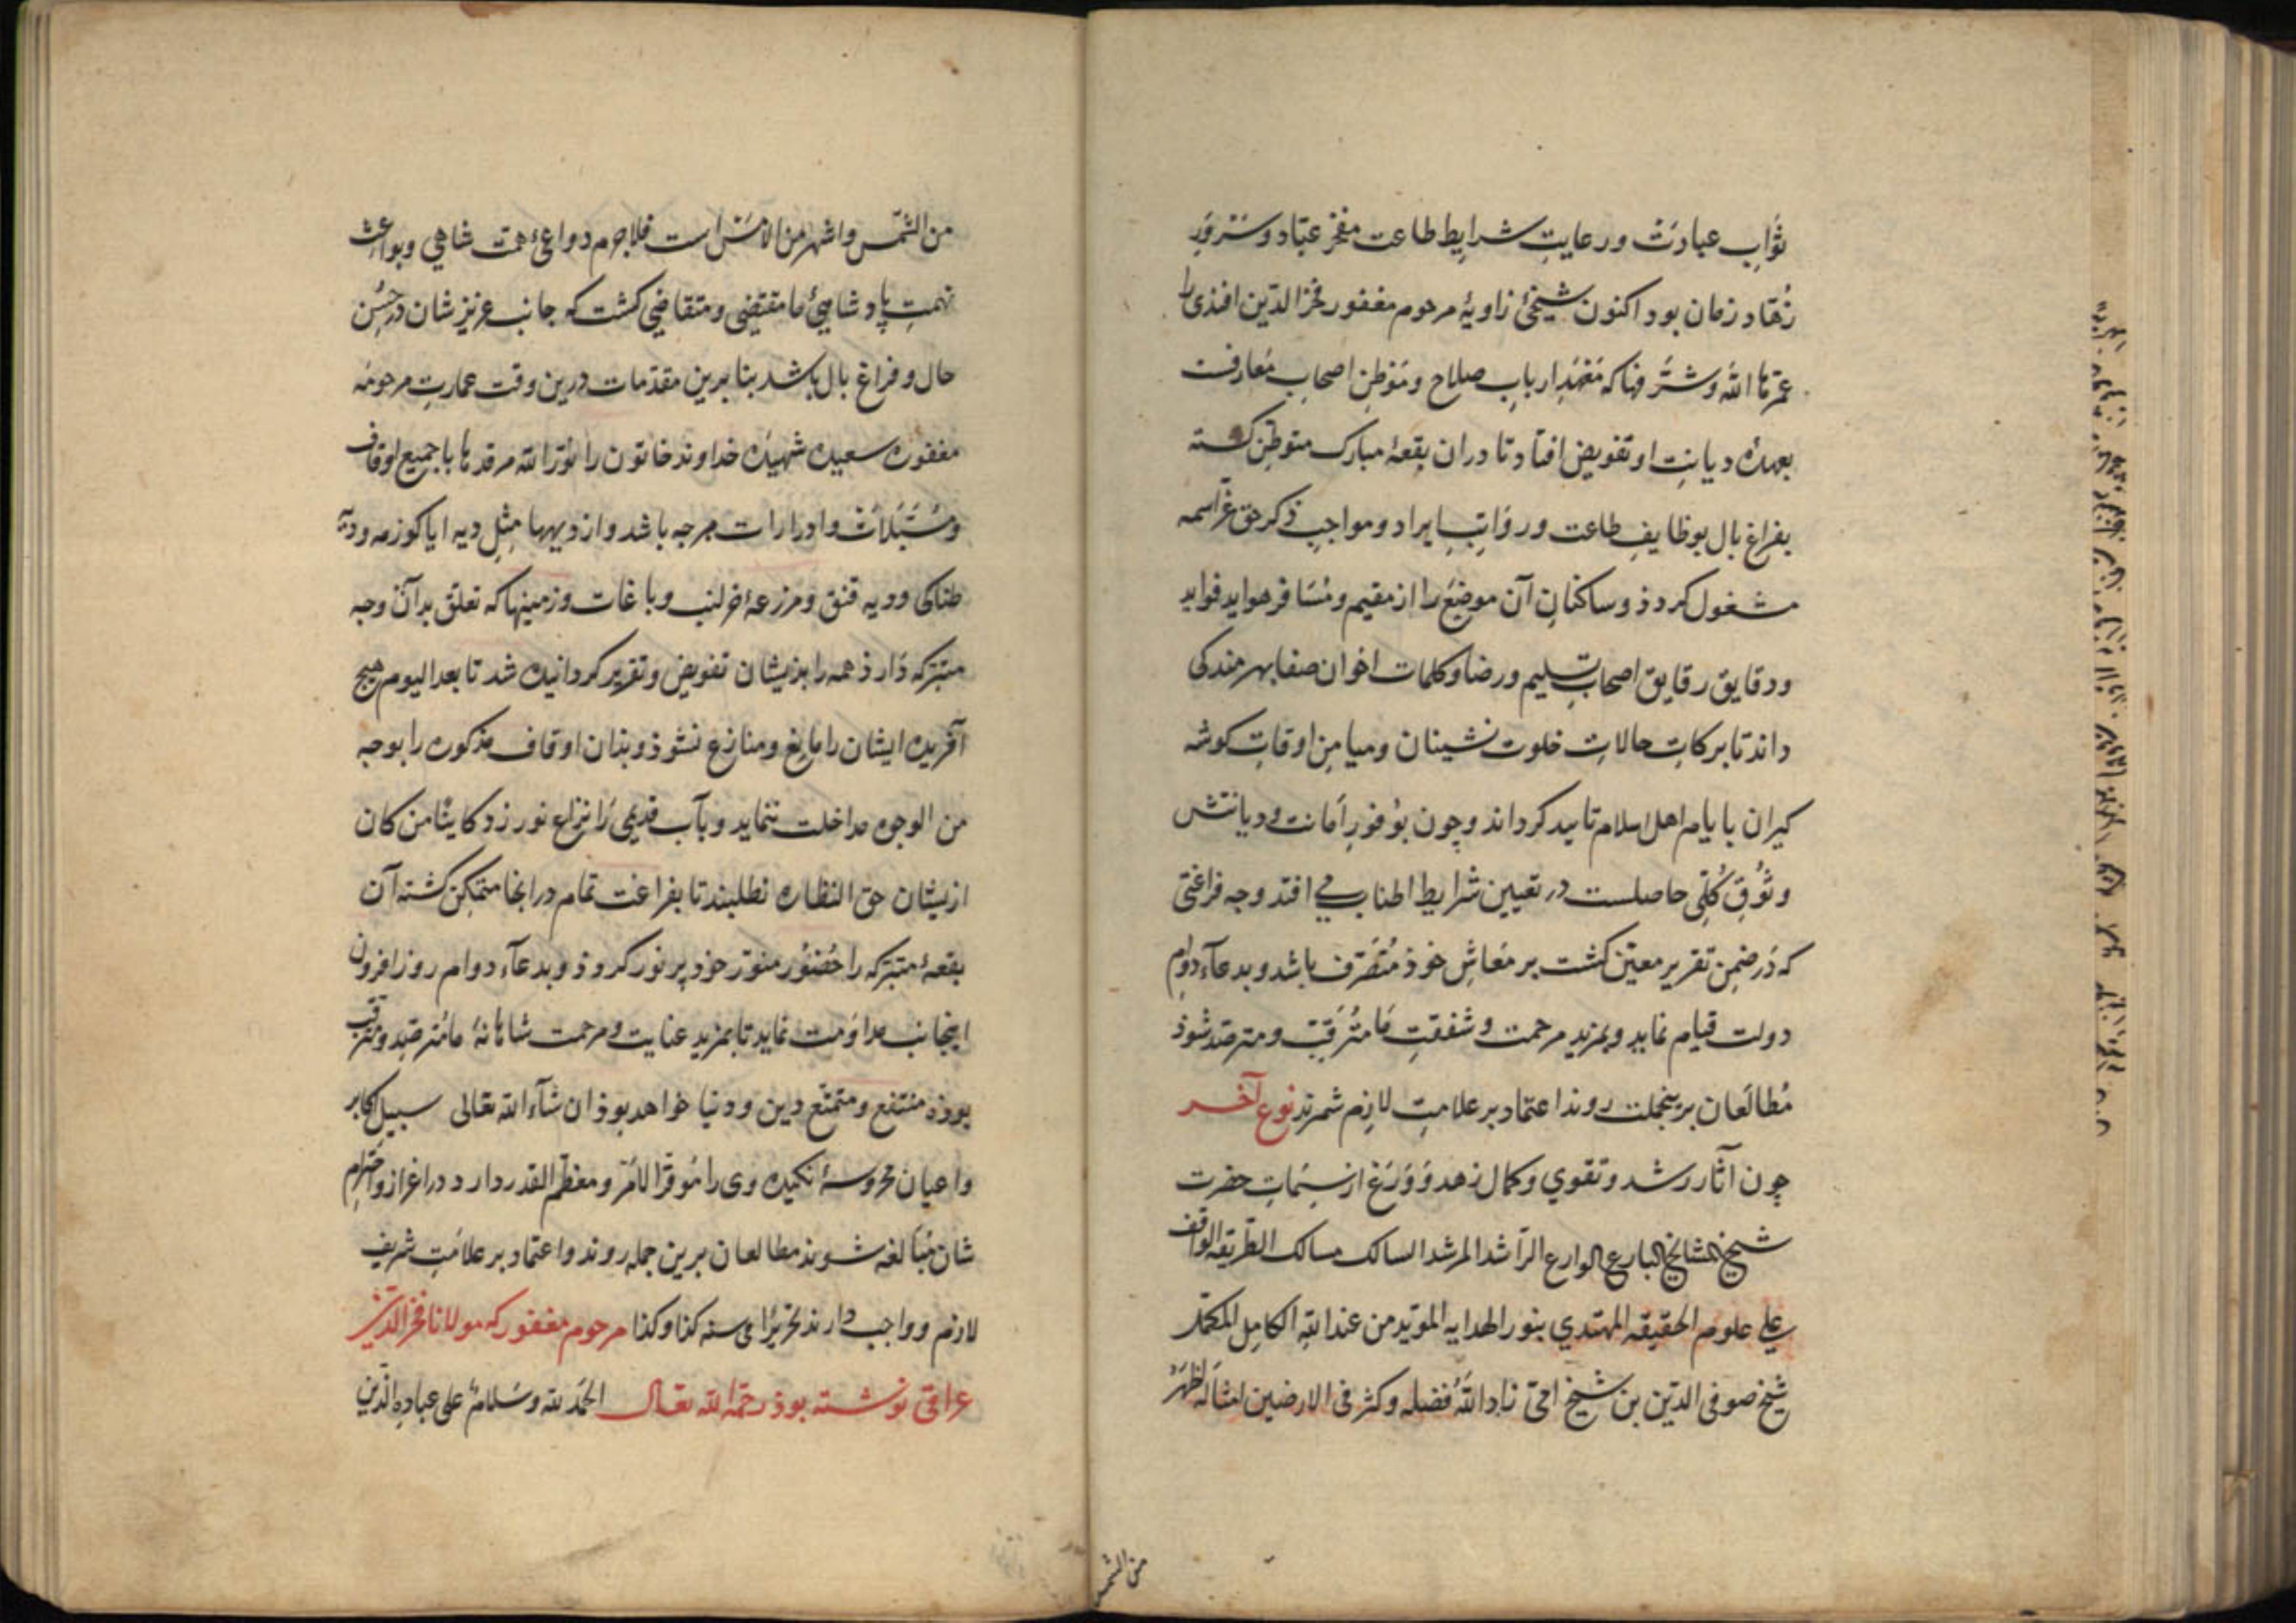 ثواب عبادت ورعایت شرایط طاعت مفخر عبّاد وسرور
زهّاد زمان بود اکنون شیخئ زاویهٔ مرحوم مغفور فخر الدّین افندی را
عمّرها الله وشرّفها که معهد ارباب صلاح وموطن اصحاب معارفت
بعهدهٔ دیانت او تفویض افتاد تا دران بقعهٔ مبارک متوطّن کشته
بفراغ بال بوظایف طاعت ورواتب ایراد ومواجب ذکر حق عزّ اسمه
مشغول کردد وساکنان آن موضع را از مقیم ومسافر هواید فواید
ودقایق رقایق اصحاب تسلیم ورضا وکلمات اخوان صفا بهرمند کی
داند تا برکات حالات خلوت نشینان ومیامن اوقات کوشه
کیران بایام اهل اسلام تایید کرداند وچون بوفور امانت ودیانتش
وثوق کلّی حاصلست در تعیین شرایط اطناب می افتد وجه فراغتی
که در ضمن تقریر معیّن کشت بر معاش خوذ متصرّف باشد وبدعآء دوام
دولت قیام نماید وبمزید مرحمت وشفقت ما مترقّب ومترصّد شوذ
مطالعان برینجملت روند اعتماد بر علامت لازم شمرند نوع آخر
چون آثار رشد وتقوی وکمال زهد وورع از سیمات حضرت
شیخ المشایخ البارع الوارع الرّاشد المرشد السالک مسالک الطّریقه الواقف
علی علوم الحقیقه المهتدی بنور الهدایه المؤید من عند الله الکامل المکمّل
شیخ صوفی الدّین بن شیخ اخی زاد الله فضله وکثر فی الارضین امثاله اظهر
من الشمس
من الشّمس واشهر من الامس است فلاجرم دواعئ همّت شاهی وبواعث
نهمت پادشاهئ ما مقتضی ومتقاضی کشت که جانب عزیزشان در حسن
حال وفراغ بال باشد بنا برین مقدّمات درین وقت عمارت مرحومه
مغفوره سعیده شهیده خداوند خاتون را نوّر الله مرقدها با جمیع اوقاف
ومستبلات وادرارات هرچه باشد واز دیهها مثل دیه ایاکوزمه ودیه
طناکی ودیه قنق ومزرعهٔ وباغات وزمینها که تعلق بدان وجه
متبرّکه دارذ همه را بذیشان تفویض وتقریر کردانیده شد تا بعد الیوم هیچ
آفریده ایشان را مانع ومنازع نشوذ وبذان اوقاف مذکوره را بوجه
من الوجوه مداخلت ننماید وبآب قدیمی را نزاع نورزد کاینا من کان
ازیشان حق النظاره نطلبند تا بفراغت تمام در انجا متمکّن کشته آن
بقعهٔ متبرّکه را حضور منوّر خود پر نور کرود وبدعآء دوام روز افزون
اینجانب مداومت نماید تا بمزید عنایت ومرحمت شاهانهٔ ما مترصّد ومترقّب
بوذه منتفع ومتمتّع دین ودنیا خواهد بوذ ان شآء الله تعالی سبیل اکابر
واعیان محروسهٔ انکیده وی را موقّر الامر ومعظّم القدر دارد در اعزاز واحترام
شان مبالغه شوند مطالعان برین جمله روند واعتماد بر علامت شریف
لازم وواجب دارند تحریرًا فی سنه کذا وکذا مرحوم مغفور که مولانا فخر الدّین
عراقی نوشته بوذ رحمة الله تعالی الحمد لله وسلام علی عباده الّذین